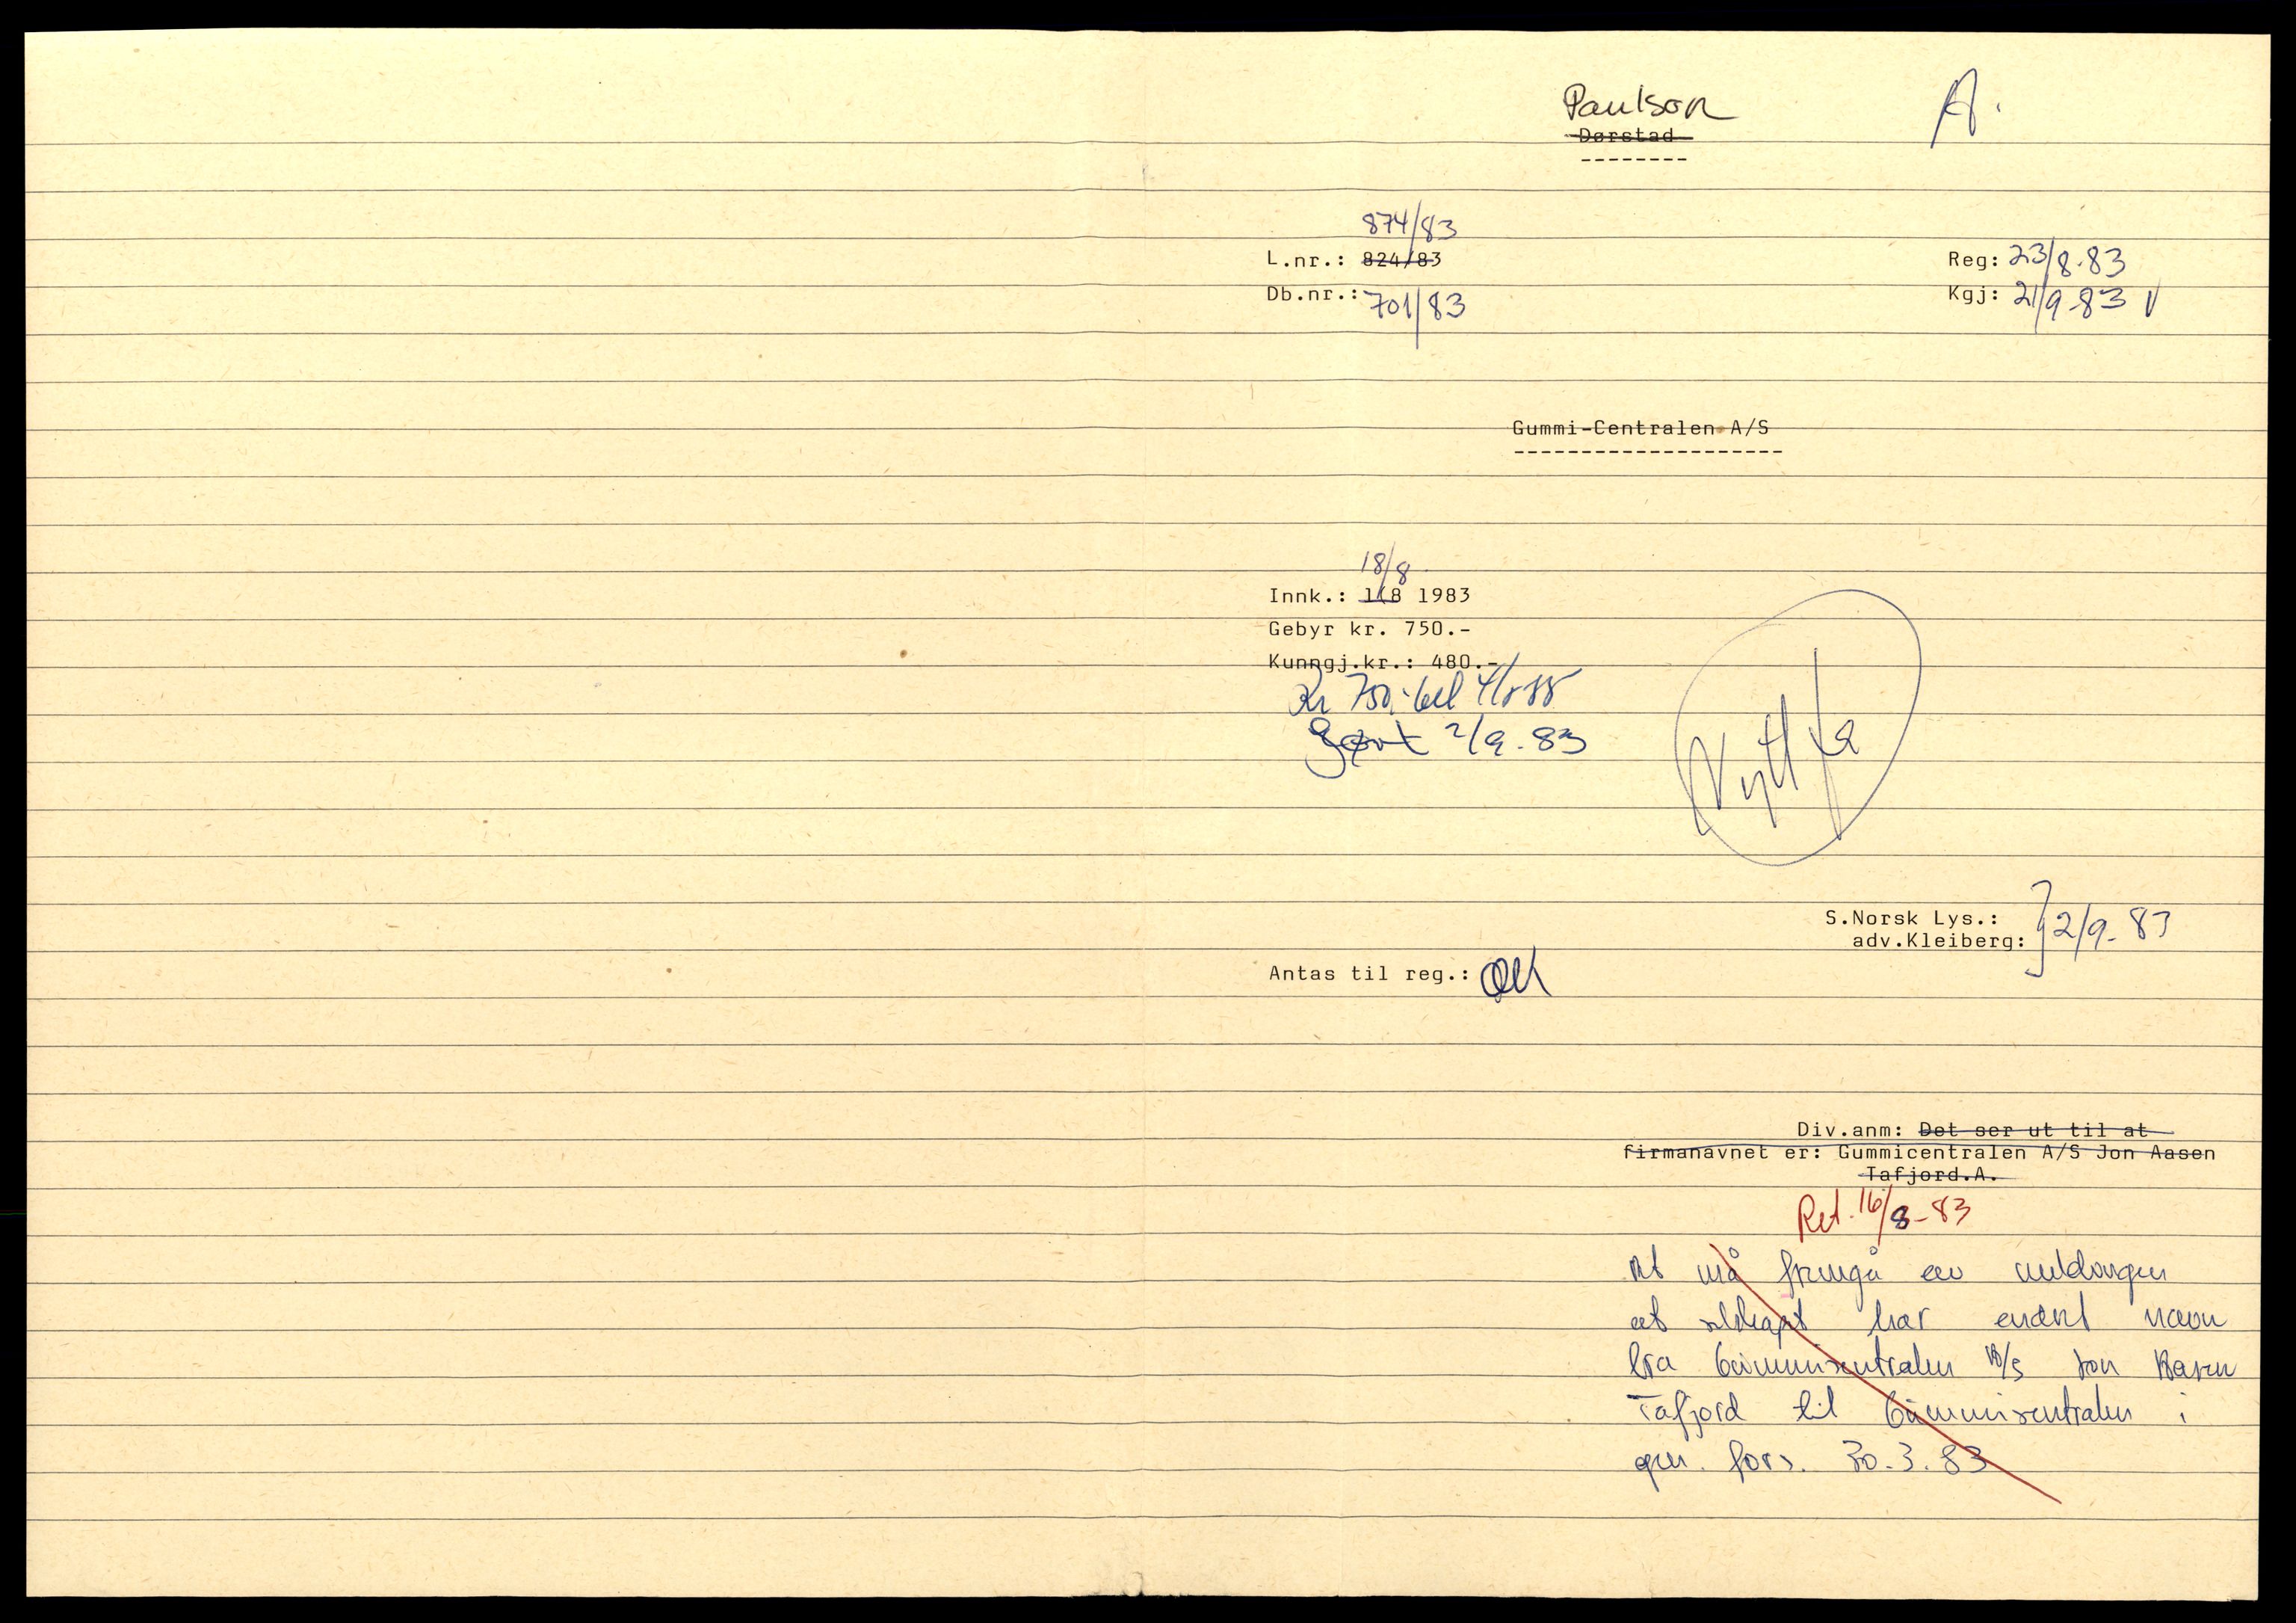 Paulson A.
Dørstad
--------
874/83
L.nr.: 824/83 Reg: 23/8-83
Db.nr.: 701/83 Kgj: 21/9-83 V
Gummi-Centralen A/S
--------------------
18/8
Innk.: 1/8 1983
Gebyr kr. 750.-
Kunngj.kr.: 480.-
Kr 750,- bet
Gjort 2/9-83
Nytt
S.Norsk Lys.:
adv.Kleiberg: } 2/9-83
Antas til reg.: OK
Div.anm: Det ser ut til at
firmanavnet er: Gummicentralen A/S Jon Aasen
Tafjord.A.
Ret. 16/8-83
Det må fremgå av meldingen
at selskapet har endret navn
fra Gummisentralen A/S Jon Aasen
Tafjord til Gummisentralen i
gen. fors. 30.3.83